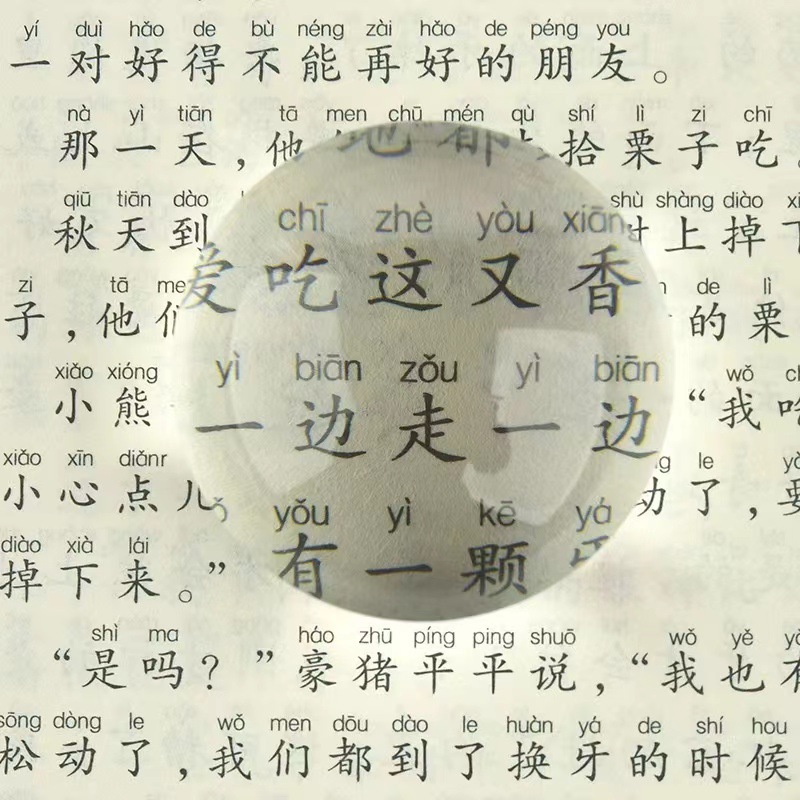 yí duì hǎo de bù néng zài hǎo de péng you
一对好得不能再好的朋友。
nà yì tiān tā men chū mén qù shí lì zi chī
那一天，他 拾栗子吃
qiū tiān dào shù shàng diào
秋天到 上掉
chī zhè yòu xiān
爱吃这又香
zi tā de lì
子，他们 的栗
yì biān zǒu yì biān
一边走一边
xiǎo xióng wǒ
小熊 “我吃
xiǎo xīn diǎnr le
小心点儿 动了，要
yǒu yì kē yá
有一颗
diào xià lái
掉下来。”
shì ma háo zhū píng ping shuō wǒ yě
“是吗？”豪猪平平说，“我也有
sōng dòng le wǒ men dōu dào le huàn yá de shí hou
松动了，我们都到了换牙的时候